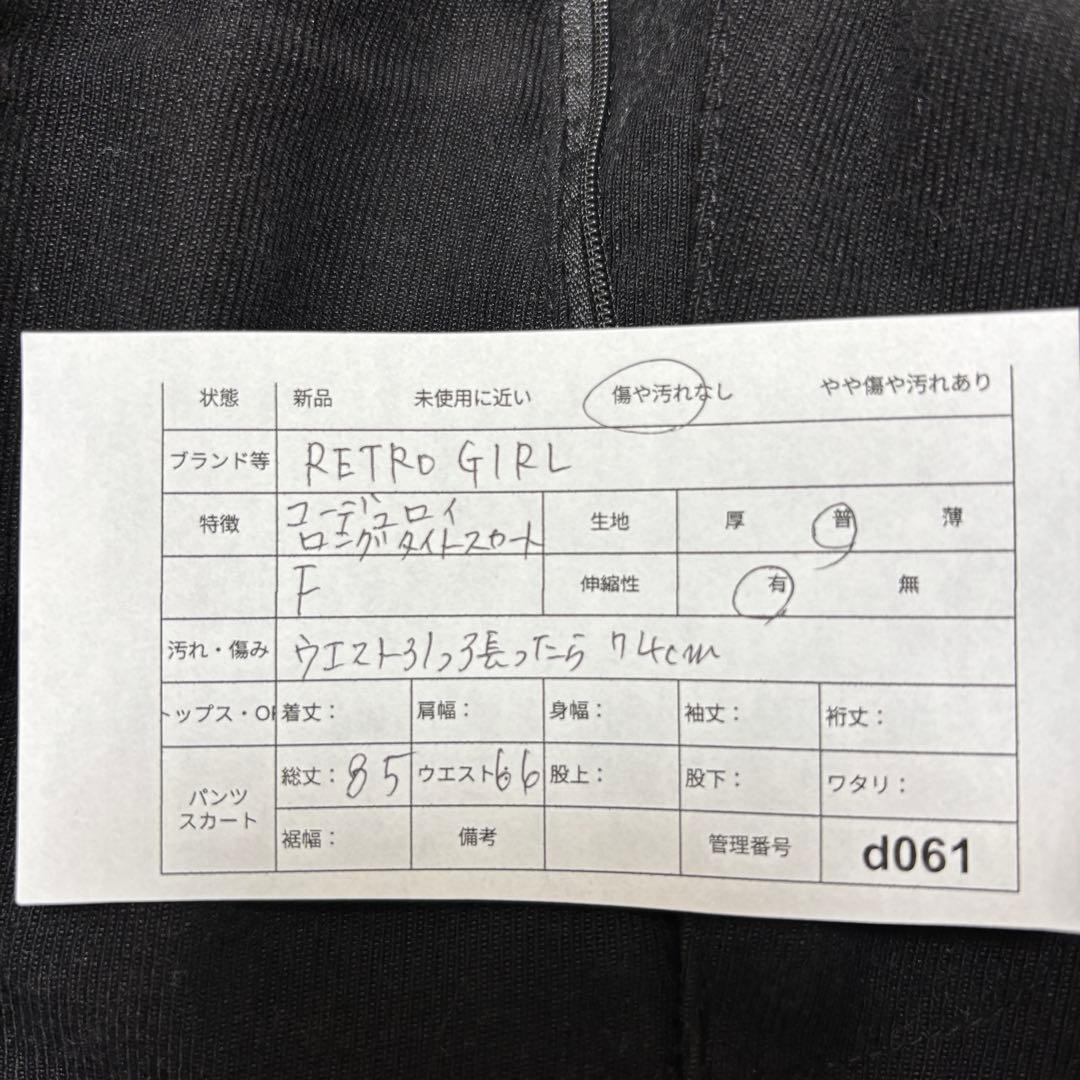 状態 新品 未使用に近い 傷や汚れなし やや傷や汚れあり
ブランド等 RETRO GIRL
特徴 コーデュロイ
ロングタイトスカート
生地 厚 普 薄
F 伸縮性 有 無
汚れ・傷み ウエスト引っ張ったら 74cm
トップス・OP 着丈： 肩幅： 身幅： 袖丈： 裄丈：
パンツ
スカート
総丈：85 ウエスト：66 股上： 股下： ワタリ：
裾幅： 備考 管理番号 d061